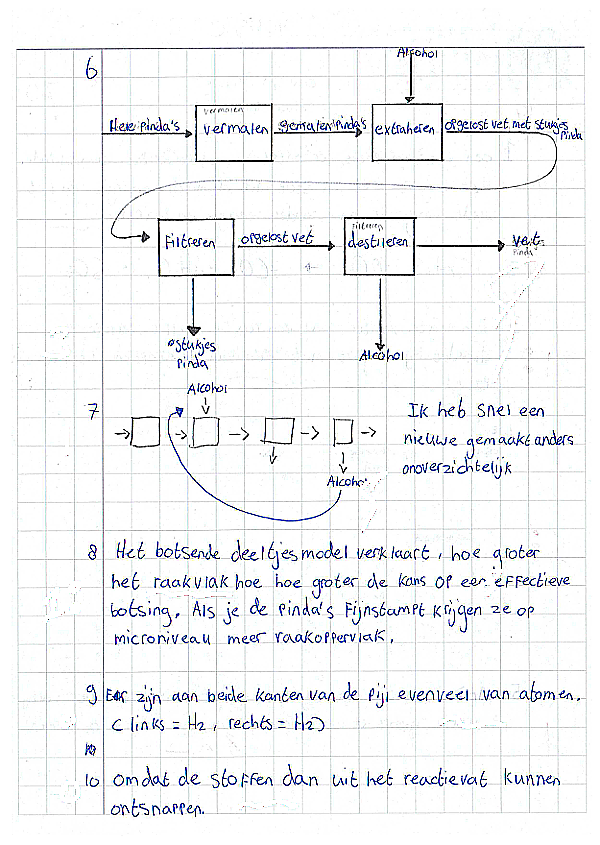 6
Alcohol
Hele pinda's
vermalen
vermalen
gemalen pinda's
extraheren
opgelost vet met stukjes
pinda
Filtreren
opgelost vet
Filtreren
destileren
vet
pinda
stukjes
pinda
Alcohol
7
Alcohol
Alcohol
Ik heb snel een
nieuwe gemaakt anders
onoverzichtelijk
8 Het botsende deeltjes model verklaart, hoe groter
het raakvlak hoe hoe groter de kans op een effectieve
botsing. Als je de pinda's fijnstampt krijgen ze op
microniveau meer raakoppervlak.
9 Er zijn aan beide kanten van de pijl evenveel van atomen.
( links = H2, rechts = H2)
10 omdat de stoffen dan uit het reactievat kunnen
ontsnappen.